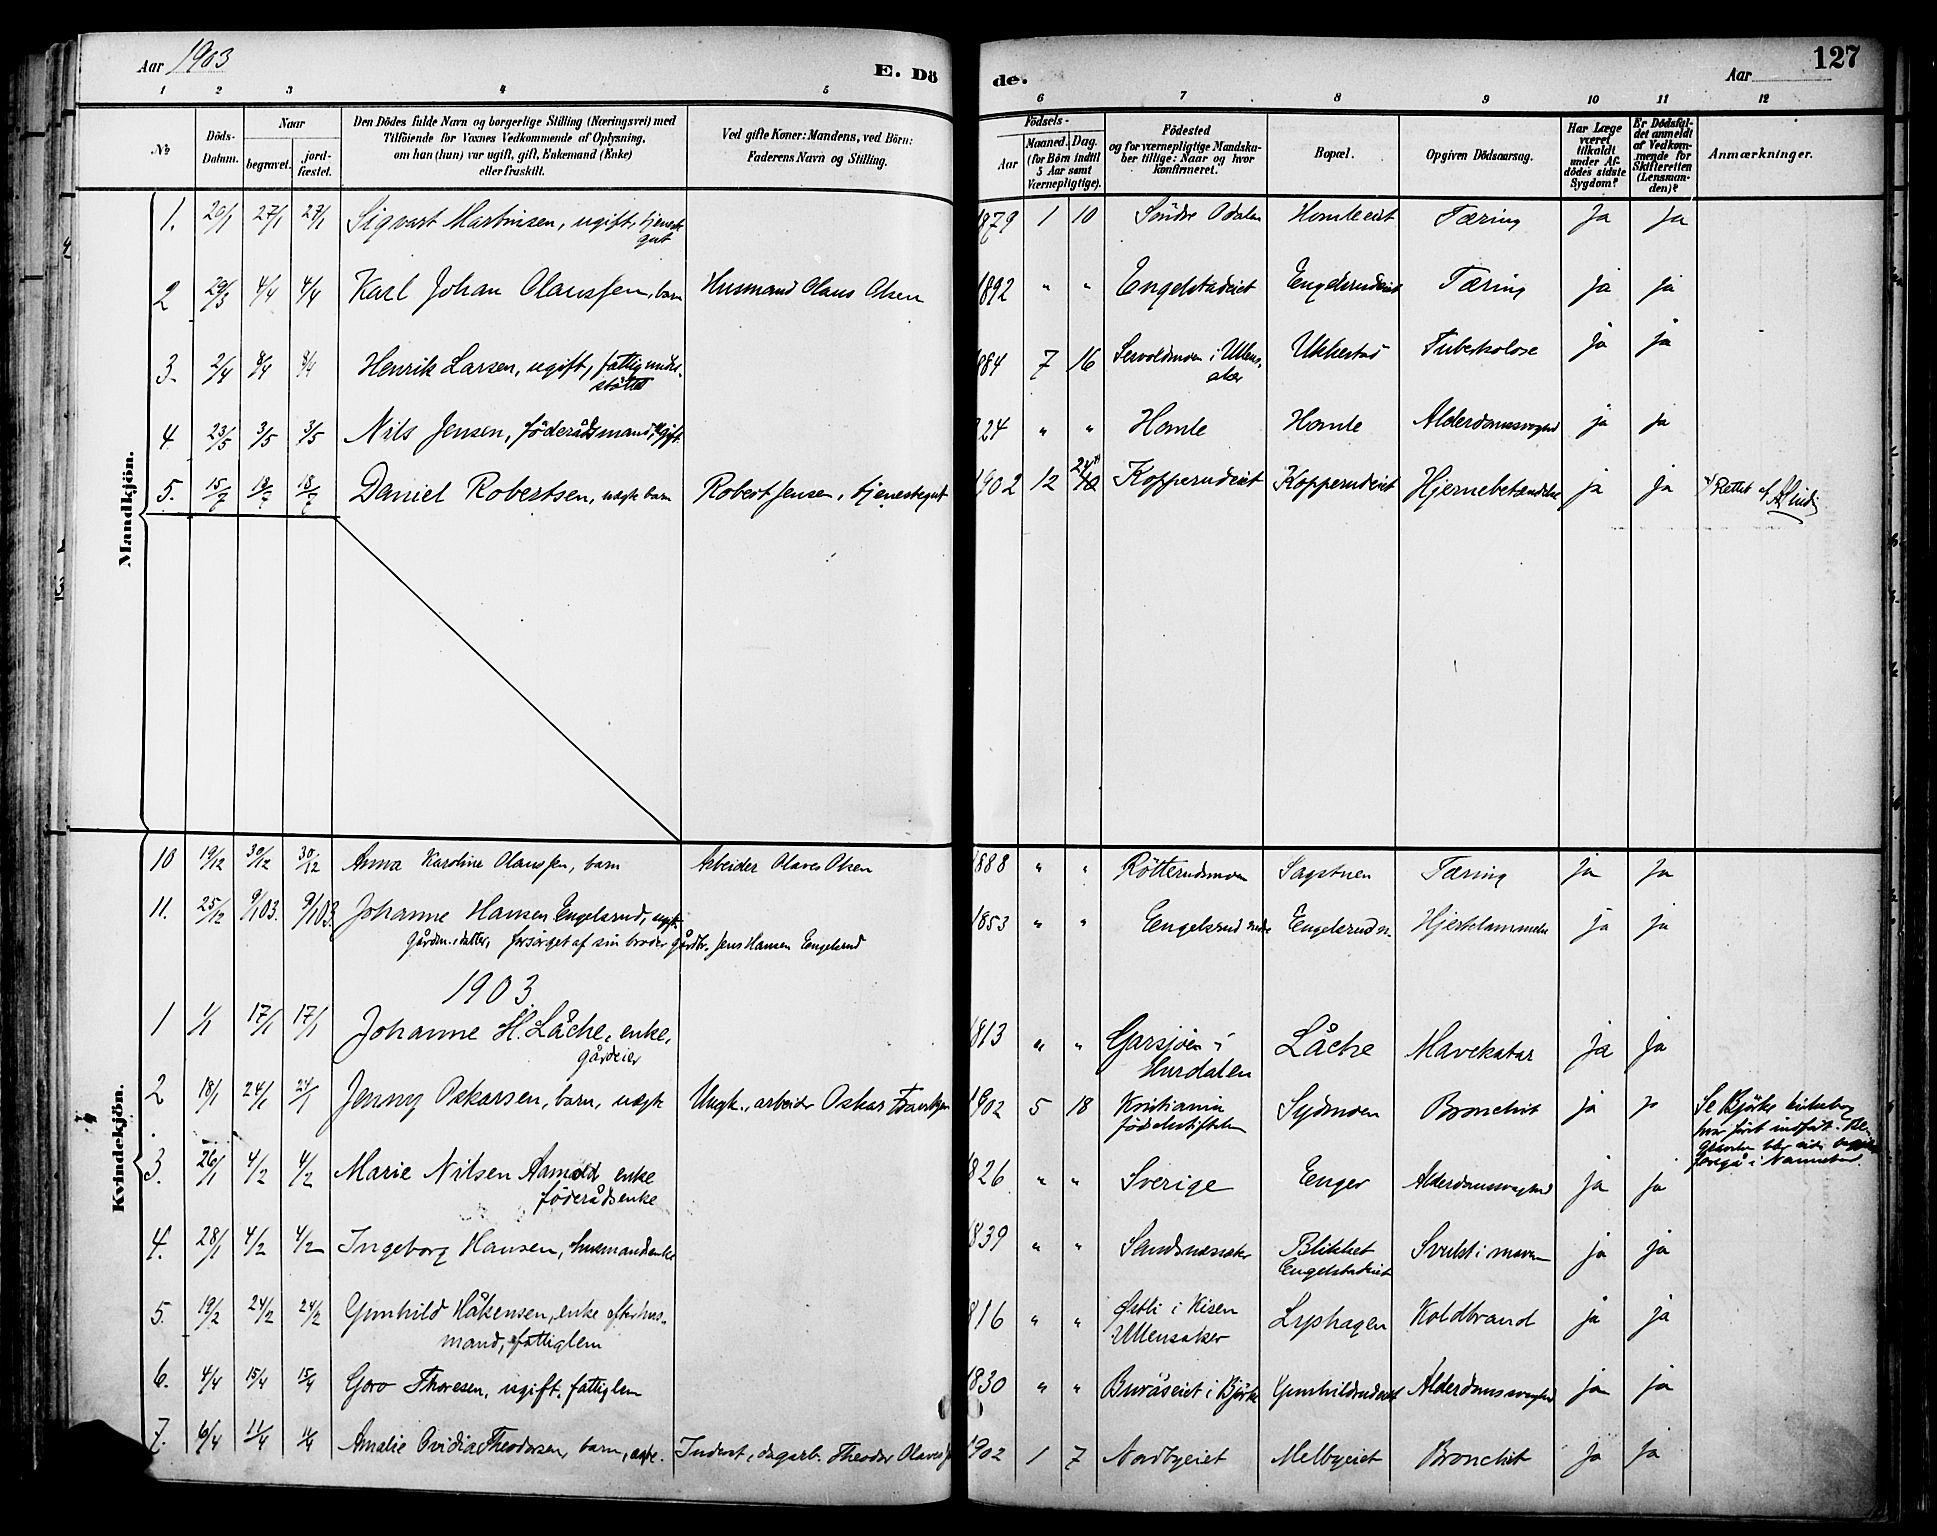 Aar 1903
E. Dö
de.
Aar
127
1 2 3 4 5 6 7 8 9 10 11 12
No
Döds-Datum.
Naar
begravet.
jord-fæstet.
Den Dödes fulde Navn og borgerlige Stilling (Næringsvei) med
Tilföiende for Voxnes Vedkommende af Oplysning,
om han (hun) var ugift, gift, Enkemand (Enke)
eller fraskilt.
Ved gifte Koner: Mandens, ved Börn:
Faderens Navn og Stilling.
Födsels-
Aar
Maaned. Dag.
(for Börn indtil
5 Aar samt
Værnepligtige).
Födested
og for værnepligtige Mandska-
ber tillige: Naar og hvor
konfirmeret.
Bopæl.
Opgiven Dödsaarsag.
Har Læge
været
tilkaldt
under Af-
dödes sidste
Sygdom?
Er Dödsfal-
det anmeldt
af Vedkom-
mende for
Skifteretten
(Lensman-
den)?
Anmærkninger.
Mandkjön.
1. 20/1 27/1 27/1 Sigvart Martinisen, ugift, tjeneste
gut 1879 1 10 Söndre Odalen Homleeiet Tæring Ja Ja
2 29/3 4/4 4/4 Karl Johan Olaussen, barn Husmand Olaus Olsen 1892 " " Engelstadeiet Engelsrudeiet Tæring ja ja
3. 2/4 8/4 8/4 Henrik Larsen, ugift, fattigunder-
støttet 884 7 16 i Ullens-
aker Ukkestad Tuberkolose ja ja
4 23/5 3/5 3/5 Nils Jensen, föderådsmand, gift. 824 " " Homle Homle Alderdomssvaghed ja ja
5. 15/7 18/7 18/7 Daniel Robertsen, uægte barn Robert Jensen, tjenestegut 1902 12 24 Kopperudeiet Kopperudeiet Hjernebetændelse ja ja x) Rettet af
Kvindekjön.
10 19/12 30/12 30/12 Anna Karoline Olaussen, barn Arbeider Olaves Olsen 1888 " " Rötterudmoen Sagstuen Tæring ja Ja
11. 25/12 9/1 03. 9/1 03. Johanne Hansen Engelsrud, ugift.
gårdm.datter, forsörget af sin broder gårdbr. Jens Hansen Engelsrud 1853 " " Engelsrud nedre Engelsrud n. Hjertelammelse ja ja
1903
1 1/1 17/1 17/1 Johanne H. Låche, enke,
gårdeier 1813 " " Garsjöen i
Hurdalen Låche Mavekatar ja ja
2 18/1 24/1 24/1 Jenny Oskarsen, barn, uægte Ungk., arbeider Oskar 1902 5 18 Kristiania
födselsstiftelse Sydmoen Bronchit ja ja Se Bjørke kirkebog
hvor först indfört.
foregå i Nannestad.
3. 26/1 4/2 4/2 Marie Nilsen enke
föderådsenke 826 " " Sverige Enger Alderdomssvaghed ja ja
4. 28/1 4/2 4/2 Ingeborg Hansen, husmandsenke 839 " " Sandsnessaker Blikket
Engelstadeiet Svulst i maven ja ja
5. 19/2 24/2 24/2 Gunhild Håkensen, enke efter hus-
mand, fattiglem 816 " " Østli i Kisen
Ullensaker Lyshagen Koldbrand ja ja
6. 4/4 15/4 15/4 Goro Thoresen, ugift. fattiglem 1830 " " Buråseiet i Bjørke Gunhildrudeiet Alderdomssvaghed ja ja
7. 6/4 11/4 11/4 Amalie Ovidia Theodorsen, barn, ægte. Inderst, dagarb. Theodor Olaves 1902 1 7 Nordbyeiet Melbyeiet Bronchit ja ja